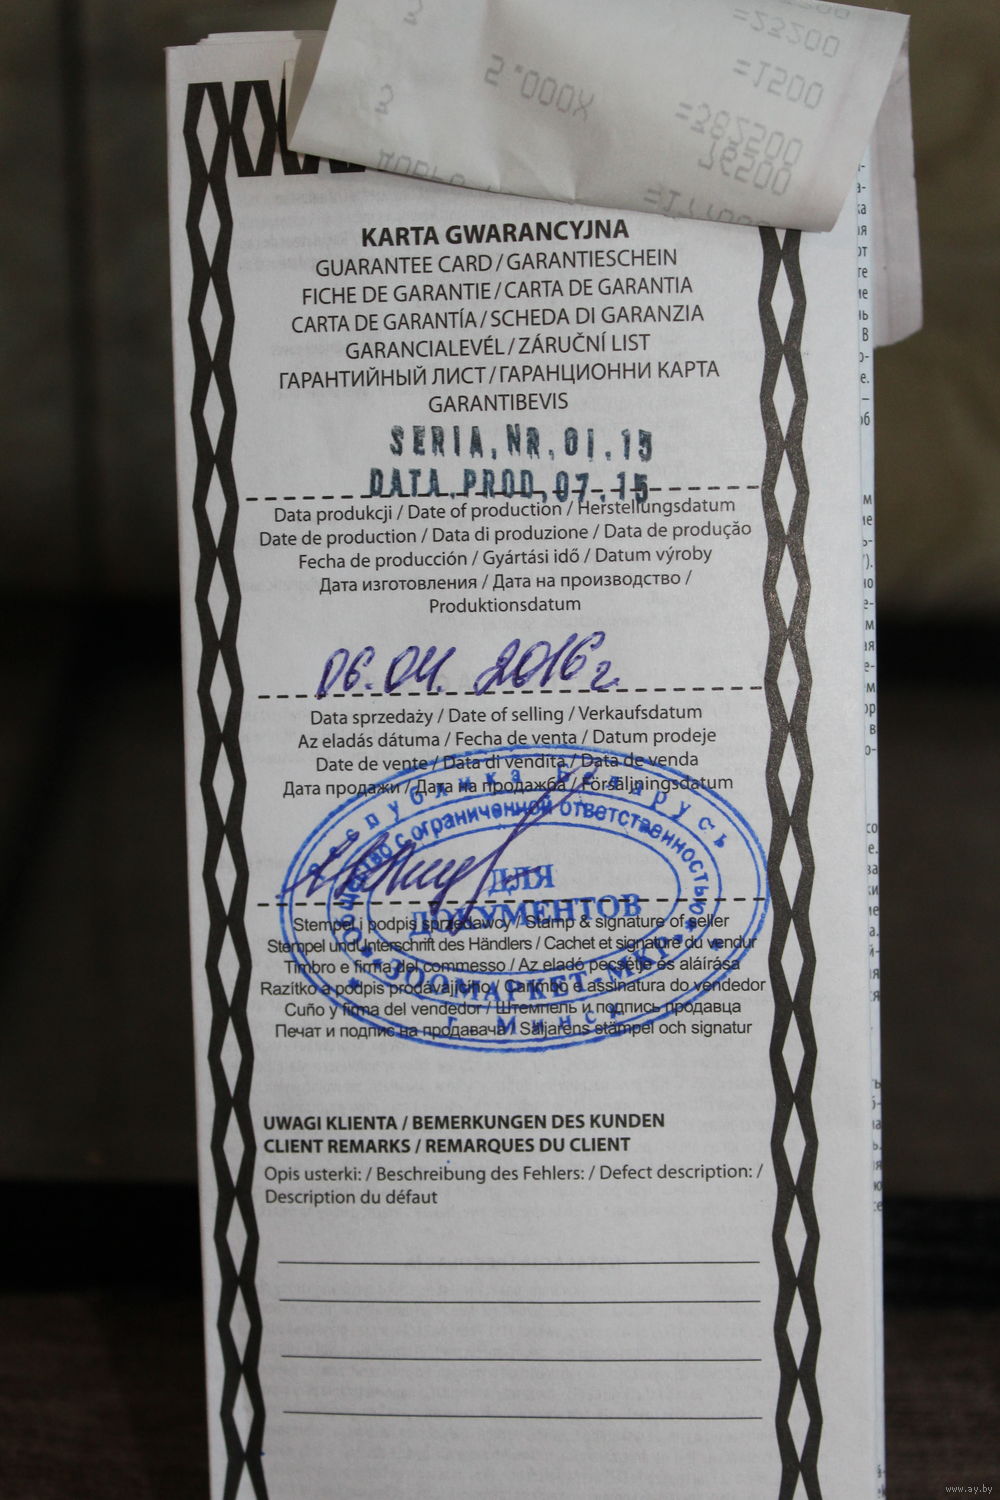 =23200
=1500
5.000X
=382500
76500
KARTA GWARANCYJNA
GUARANTEE CARD / GARANTIESCHEIN
FICHE DE GARANTIE / CARTA DE GARANTIA
CARTA DE GARANTÍA / SCHEDA DI GARANZIA
GARANCIALEVÉL / ZÁRUČNÍ LIST
ГАРАНТИЙНЫЙ ЛИСТ / ГАРАНЦИОННИ КАРТА
GARANTIBEVIS
SERIA, NR, 01.15
DATA, PROD, 07.15
Data produkcji / Date of production / Herstellungsdatum
Date de production / Data di produzione / Data de produção
Fecha de producción / Gyártási idő / Datum výroby
Дата изготовления / Дата на производство /
Produktionsdatum
06.04. 2016 г.
Data sprzedaży / Date of selling / Verkaufsdatum
Az eladás dátuma / Fecha de venta / Datum prodeje
Date de vente / Data di vendita / Data de venda
Дата продажи / Дата на продажба / Försäljningsdatum
Республика Беларусь
Общество с ограниченной ответственностью
ДЛЯ
ДОКУМЕНТОВ
"ЗООМАРКЕТ МКР"
г. Минск
Stempel i podpis sprzedawcy / Stamp & signature of seller
Stempel und Unterschrift des Händlers / Cachet et signature du vendur
Timbro e firma del commesso / Az eladó pecsétje és aláírása
Razítko a podpis prodávajícího / Carimbo e assinatura do vendedor
Cuño y firma del vendedor / Штемпель и подпись продавца
Печат и подпис на продавача / Säljarens stämpel och signatur
UWAGI KLIENTA / BEMERKUNGEN DES KUNDEN
CLIENT REMARKS / REMARQUES DU CLIENT
Opis usterki: / Beschreibung des Fehlers: / Defect description: /
Description du défaut
www.ay.by